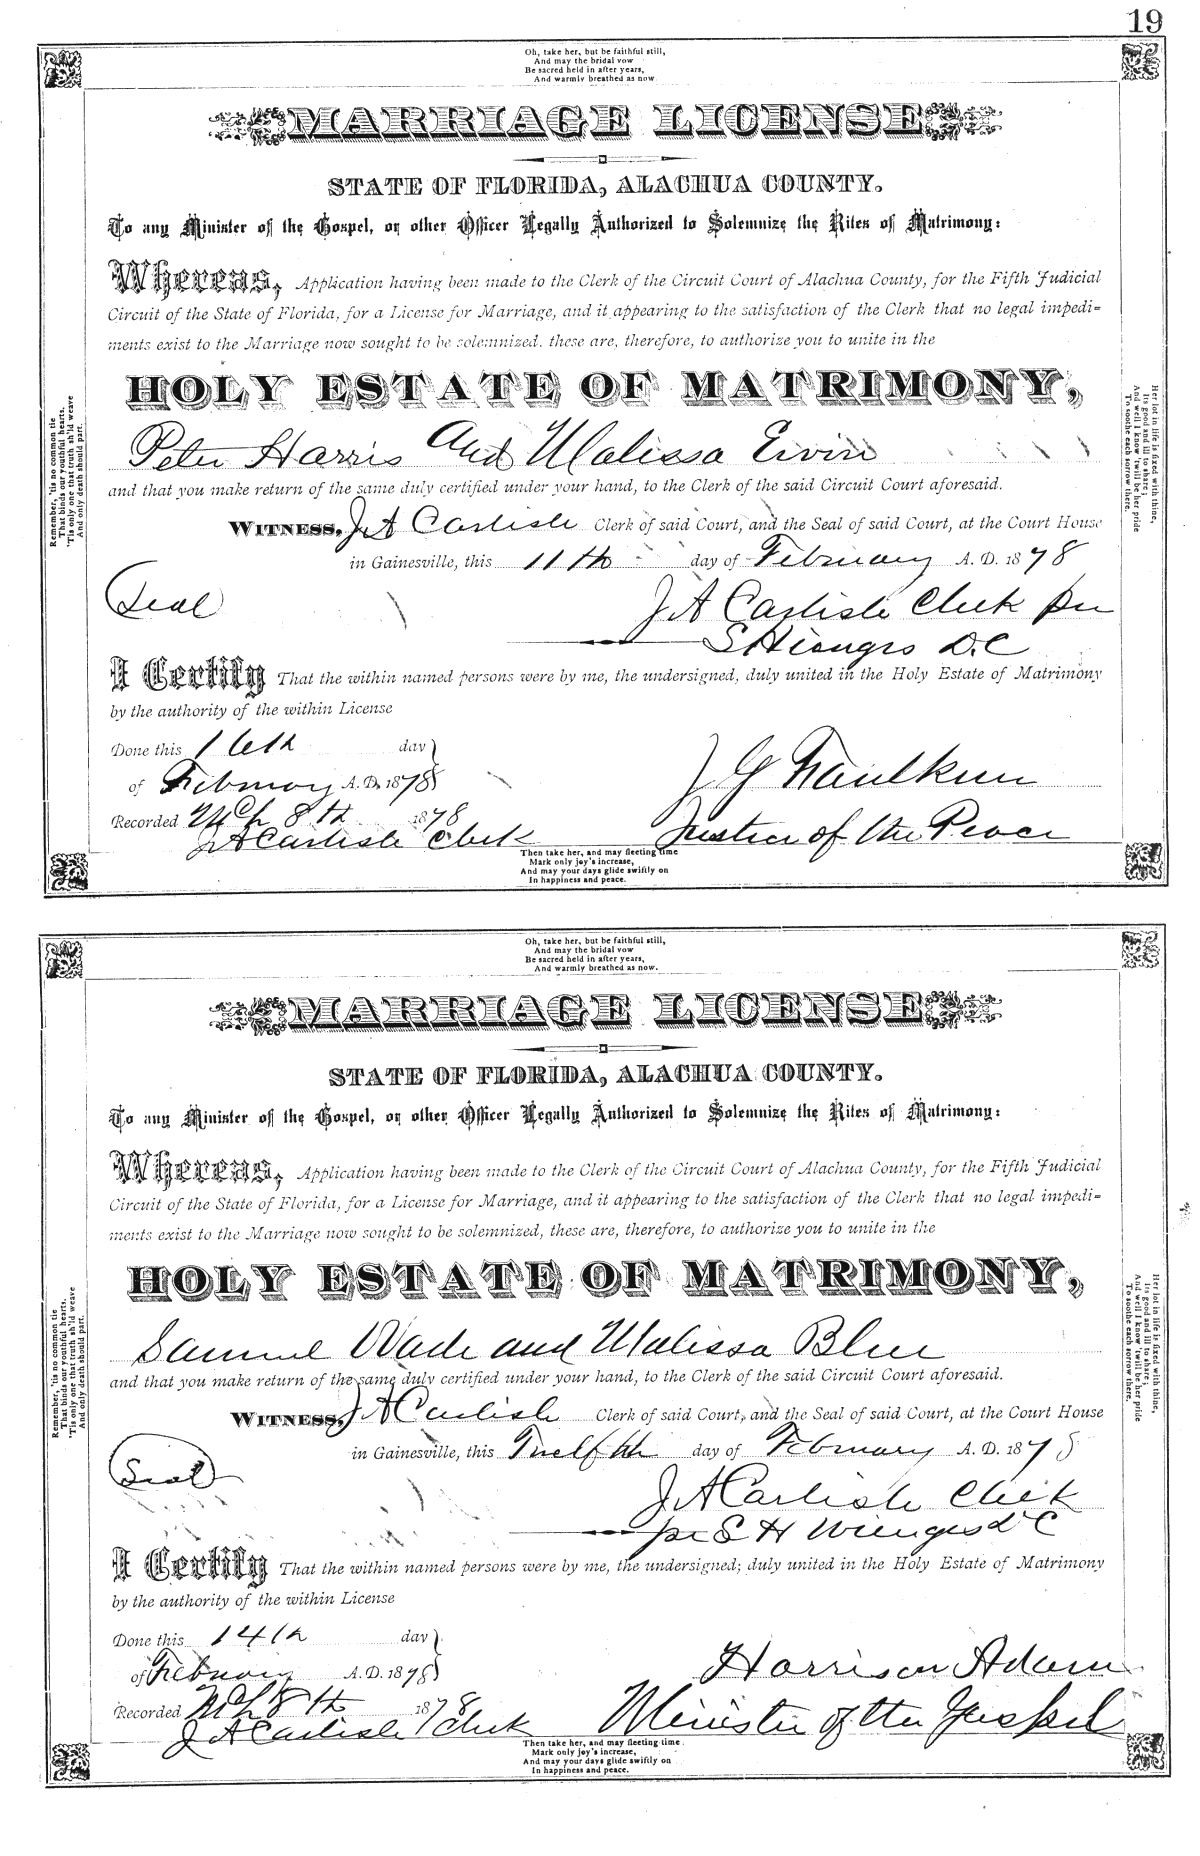 19
Oh, take her, but be faithful still,
And may the bridal vow
Be sacred held in after years,
And warmly breathed as now
MARRIAGE LICENSE
STATE OF FLORIDA, ALACHUA COUNTY.
To any Minister of the Gospel, or other Officer Legally Authorized to Solemnize the Rites of Matrimony:
Whereas, Application having been made to the Clerk of the Circuit Court of Alachua County, for the Fifth Judicial
Circuit of the State of Florida, for a License for Marriage, and it appearing to the satisfaction of the Clerk that no legal impedi=
ments exist to the Marriage now sought to be solemnized, these are, therefore, to authorize you to unite in the
HOLY ESTATE OF MATRIMONY,
Peter Harris and Malissa Ervin
and that you make return of the same duly certified under your hand, to the Clerk of the said Circuit Court aforesaid.
WITNESS, J A Carlisle Clerk of said Court, and the Seal of said Court, at the Court House
in Gainesville, this 11th day of February A. D. 1878
Seal
J A Carlisle Clerk per
S H Wienges D.C
I Certify That the within named persons were by me, the undersigned, duly united in the Holy Estate of Matrimony
by the authority of the within License
Done this 16th day
of February A. D. 1878
J G Faulkner
Recorded Mch 8th 1878
Justice of the Peace
J A Carlisle Clerk
Then take her, and may fleeting time
Mark only joy's increase,
And may your days glide swiftly on
In happiness and peace.
Remember, 'tis no common tie
That binds our youthful hearts,
'Tis only one that truth sh'ld weave
And only death should part.
Her lot in life is fixed with thine,
Its good and ill to share;
And well I know 'twill be her pride
To soothe each sorrow there.
Oh, take her, but be faithful still,
And may the bridal vow
Be sacred held in after years,
And warmly breathed as now.
MARRIAGE LICENSE
STATE OF FLORIDA, ALACHUA COUNTY.
To any Minister of the Gospel, or other Officer Legally Authorized to Solemnize the Rites of Matrimony:
Whereas, Application having been made to the Clerk of the Circuit Court of Alachua County, for the Fifth Judicial
Circuit of the State of Florida, for a License for Marriage, and it appearing to the satisfaction of the Clerk that no legal impedi=
ments exist to the Marriage now sought to be solemnized, these are, therefore, to authorize you to unite in the
HOLY ESTATE OF MATRIMONY,
Samuel Wade and Malissa Blue
and that you make return of the same duly certified under your hand, to the Clerk of the said Circuit Court aforesaid.
WITNESS, J A Carlisle Clerk of said Court, and the Seal of said Court, at the Court House
in Gainesville, this Twelfth day of February A. D. 1878
Seal
J A Carlisle Clerk
per S H Wienges D C
I Certify That the within named persons were by me, the undersigned; duly united in the Holy Estate of Matrimony
by the authority of the within License
Done this 14th day
of February A. D. 1878
Harrison Adams
Recorded Mch 8th 1878
Minister of the Gospel
J A Carlisle Clerk
Then take her, and may fleeting time
Mark only joy's increase,
And may your days glide swiftly on
In happiness and peace.
Remember, 'tis no common tie
That binds our youthful hearts,
'Tis only one that truth sh'ld weave
And only death should part.
Her lot in life is fixed with thine,
Its good and ill to share;
And well I know 'twill be her pride
To soothe each sorrow there.